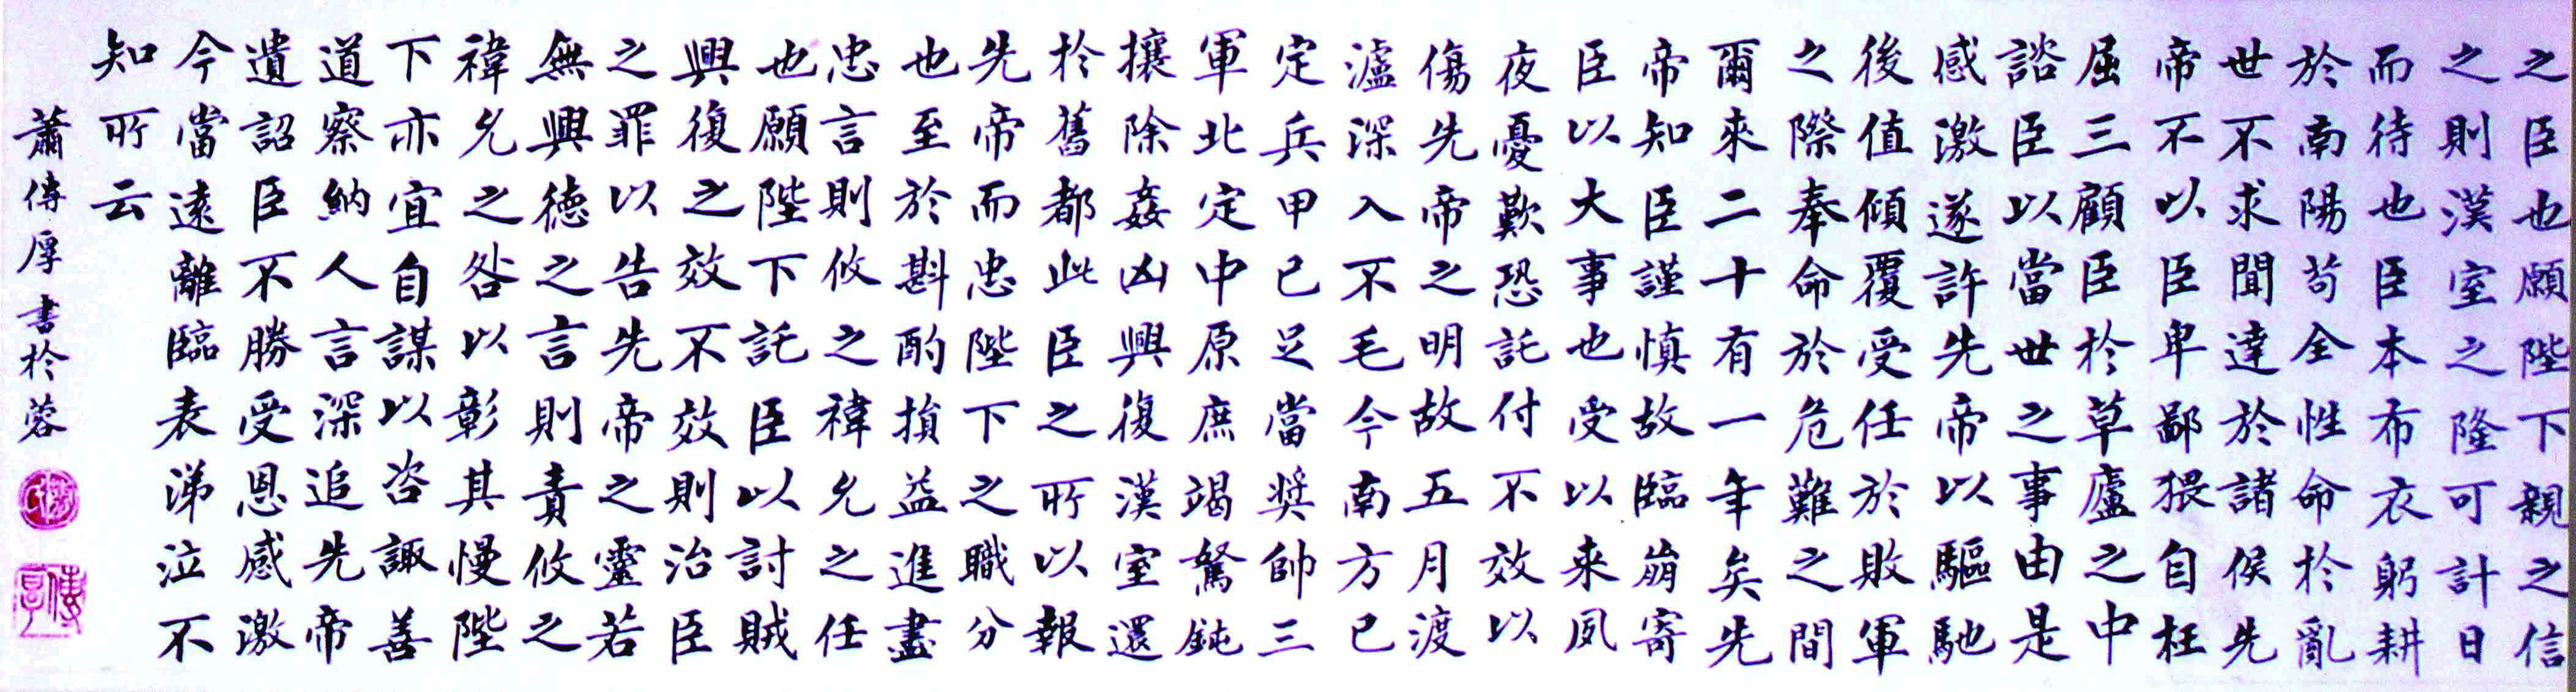 之臣也願陛下親之信
之則漢室之隆可計日
而待也臣本布衣躬耕
於南陽苟全性命於亂
世不求聞達於諸侯先
帝不以臣卑鄙猥自枉
屈三顧臣於草廬之中
諮臣以當世之事由是
感激遂許先帝以驅馳
後值傾覆受任於敗軍
之際奉命於危難之間
爾來二十有一年矣先
帝知臣謹慎故臨崩寄
臣以大事也受以来夙
夜憂歎恐託付不效以
傷先帝之明故五月渡
瀘深入不毛今南方已
定兵甲已足當奖帥三
軍北定中原庶竭駑鈍
攘除姦凶興復漢室還
於舊都此臣之所以報
先帝而忠陛下之職分
也至於斟酌損益進盡
忠言則攸之禕允之任
也願陛下託臣以討賊
興復之效不效則治臣
之罪以告先帝之靈若
無興德之言則責攸之
禕允之咎以彰其慢陛
下亦宜自謀以咨諏善
道察納人言深追先帝
遺詔臣不勝受恩感激
今當遠離臨表涕泣不
知所云
蕭傳厚書於蓉